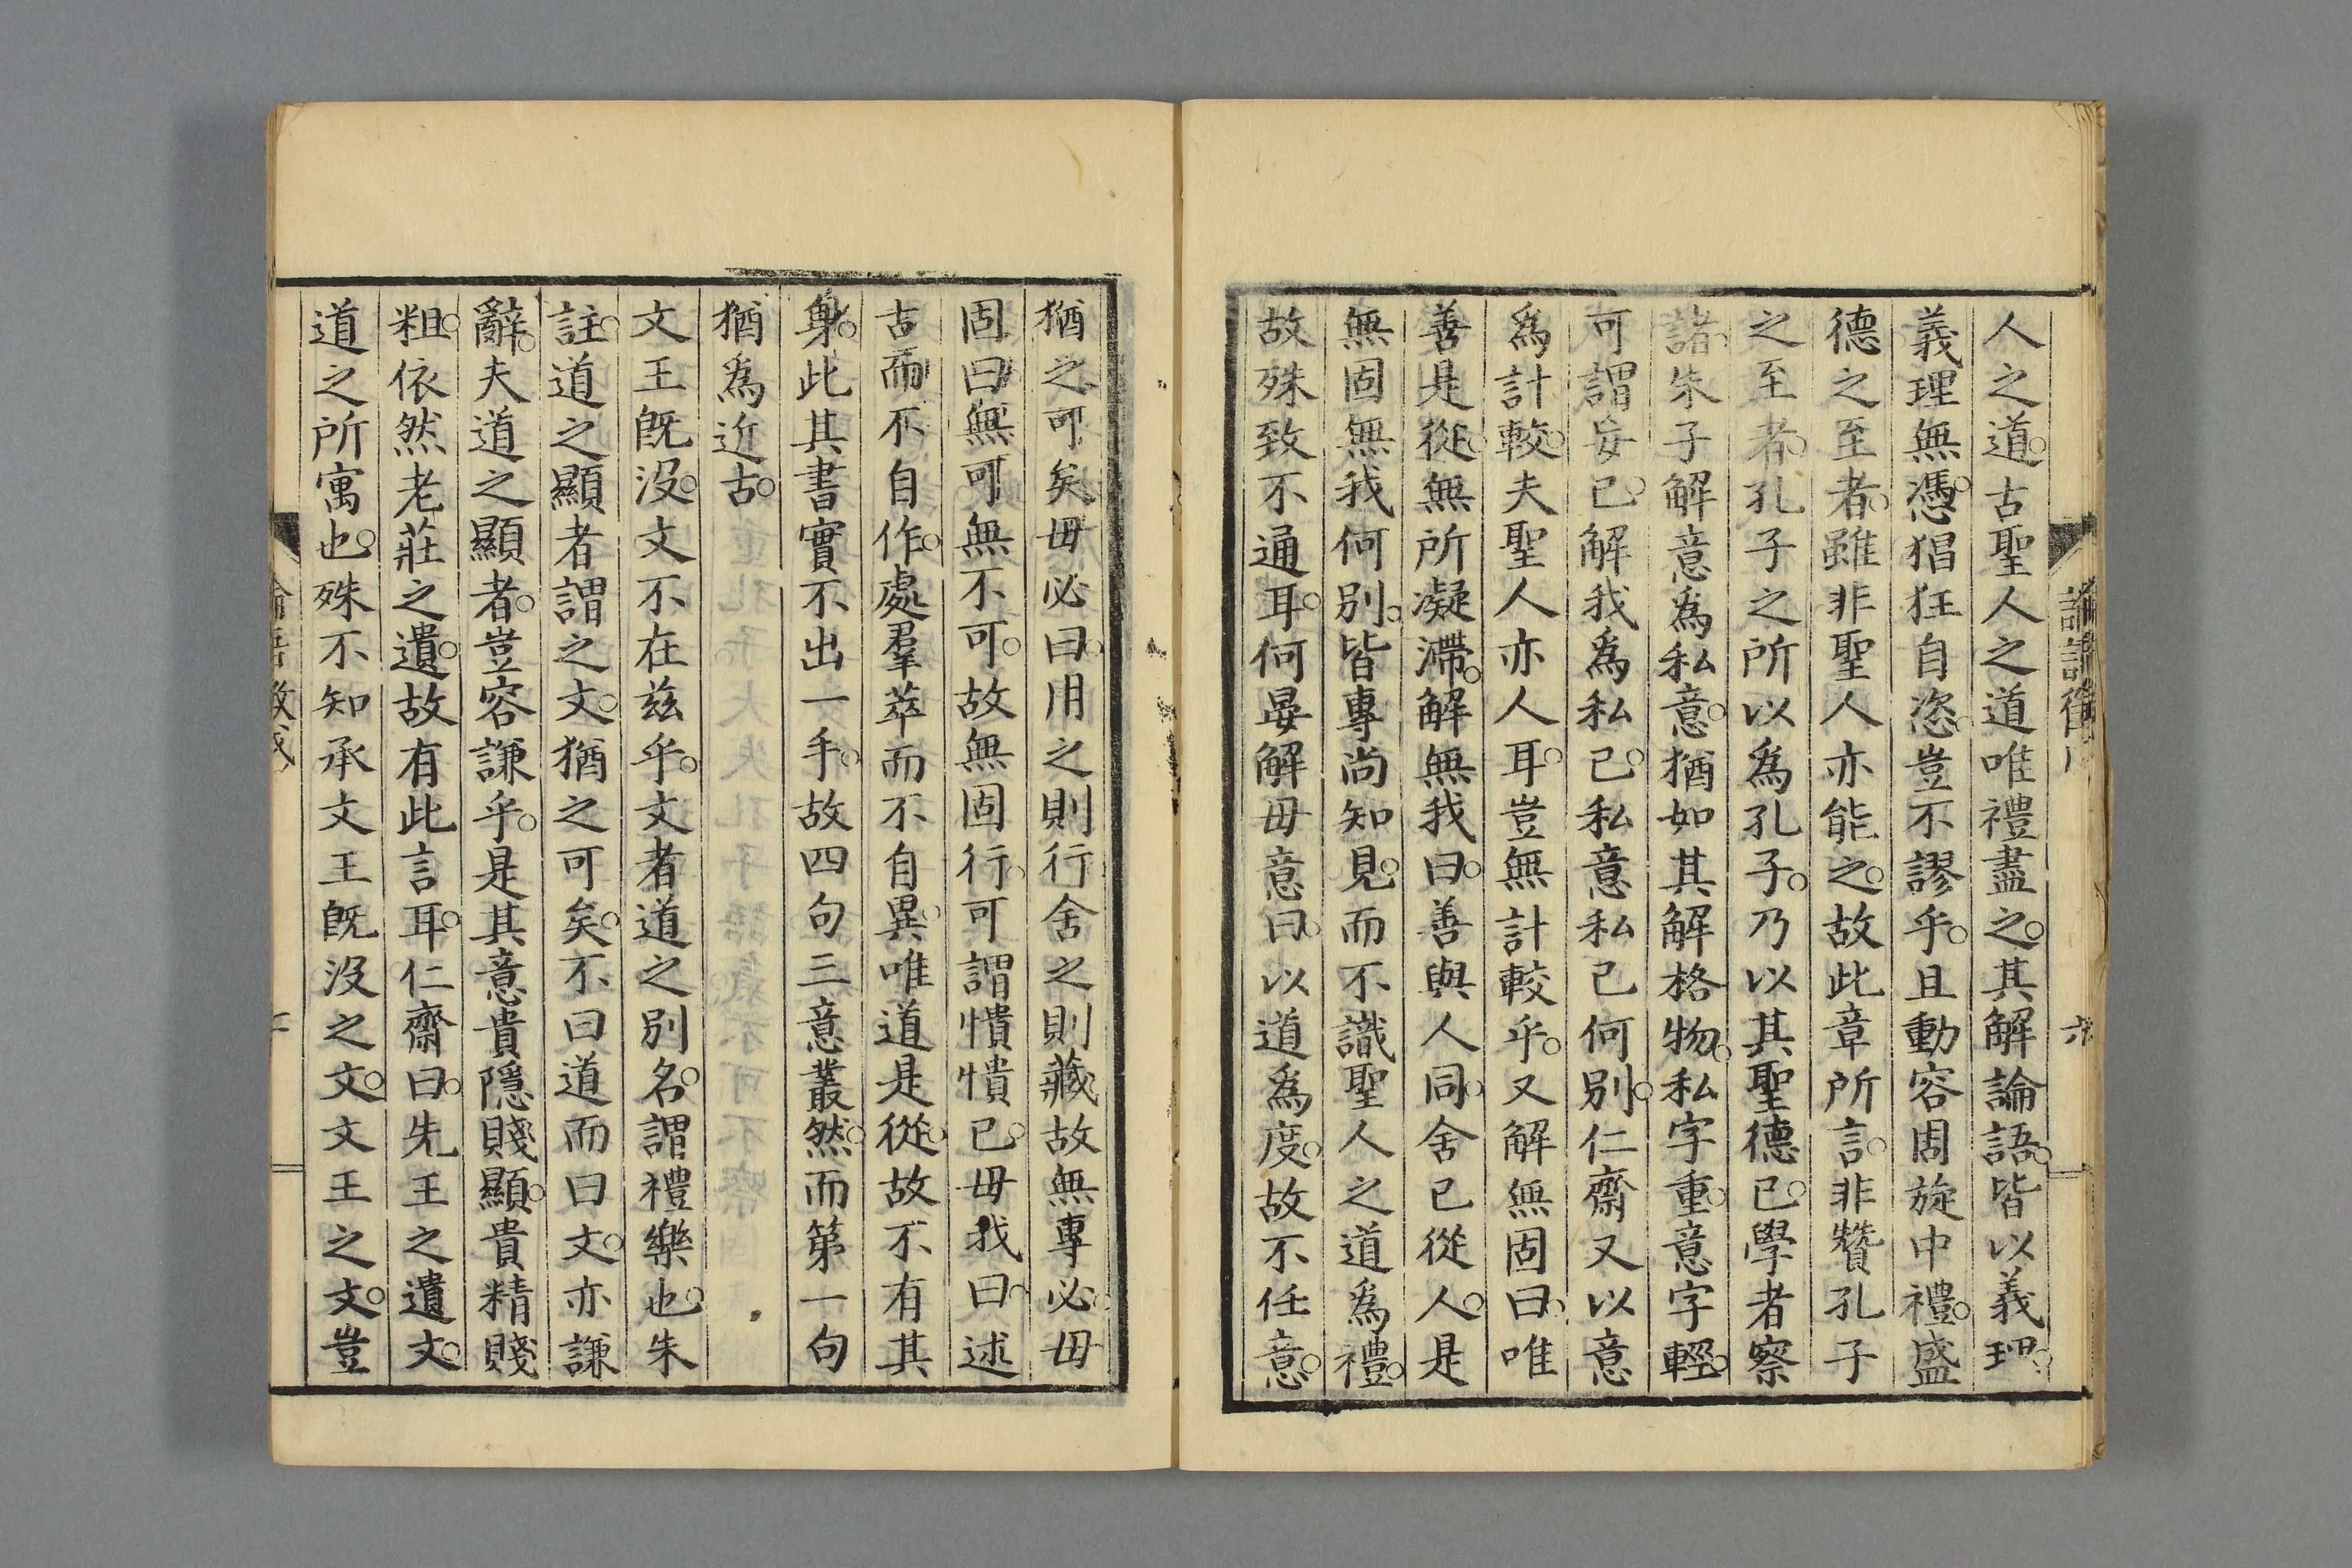 人之道。古聖人之道唯禮盡之。其解論語。皆以義理。
義理無憑。猖狂自恣。豈不謬乎。且動容周旋中禮。盛
德之至者。雖非聖人亦能之。故此章所言。非贊孔子
之至者。孔子之所以爲孔子。乃以其聖德已。學者察
諸。朱子解意爲私意。猶如其解格物。私字重。意字輕。
可謂妄已。解我爲私己。私意私己何別。仁齋又以意
爲計較。夫聖人亦人耳。豈無計較乎。又解無固曰。唯
善是從。無所凝滯。解無我曰。善與人同。舍己從人。是
無固無我何別。皆專尚知見。而不識聖人之道爲禮。
故殊致不通耳。何晏解毋意曰。以道爲度。故不任意。
六
猶之可矣。毋必曰。用之則行舍之則藏。故無專必。毋
固曰。無可無不可。故無固行。可謂憒憒已。毋我曰。述
古而不自作。處羣萃而不自異。唯道是從。故不有其
身。此其書實不出一手。故四句三意叢然。而第一句
猶爲近古。
文王旣沒。文不在茲乎。文者道之別名。謂禮樂也。朱
註。道之顯者謂之文。猶之可矣。不曰道而曰文。亦謙
辭。夫道之顯者。豈容謙乎。是其意貴隱賤顯。貴精賤
粗。依然老莊之遺。故有此言耳。仁齋曰。先王之遺文。
道之所寓也。殊不知承文王旣沒之文。文王之文。豈